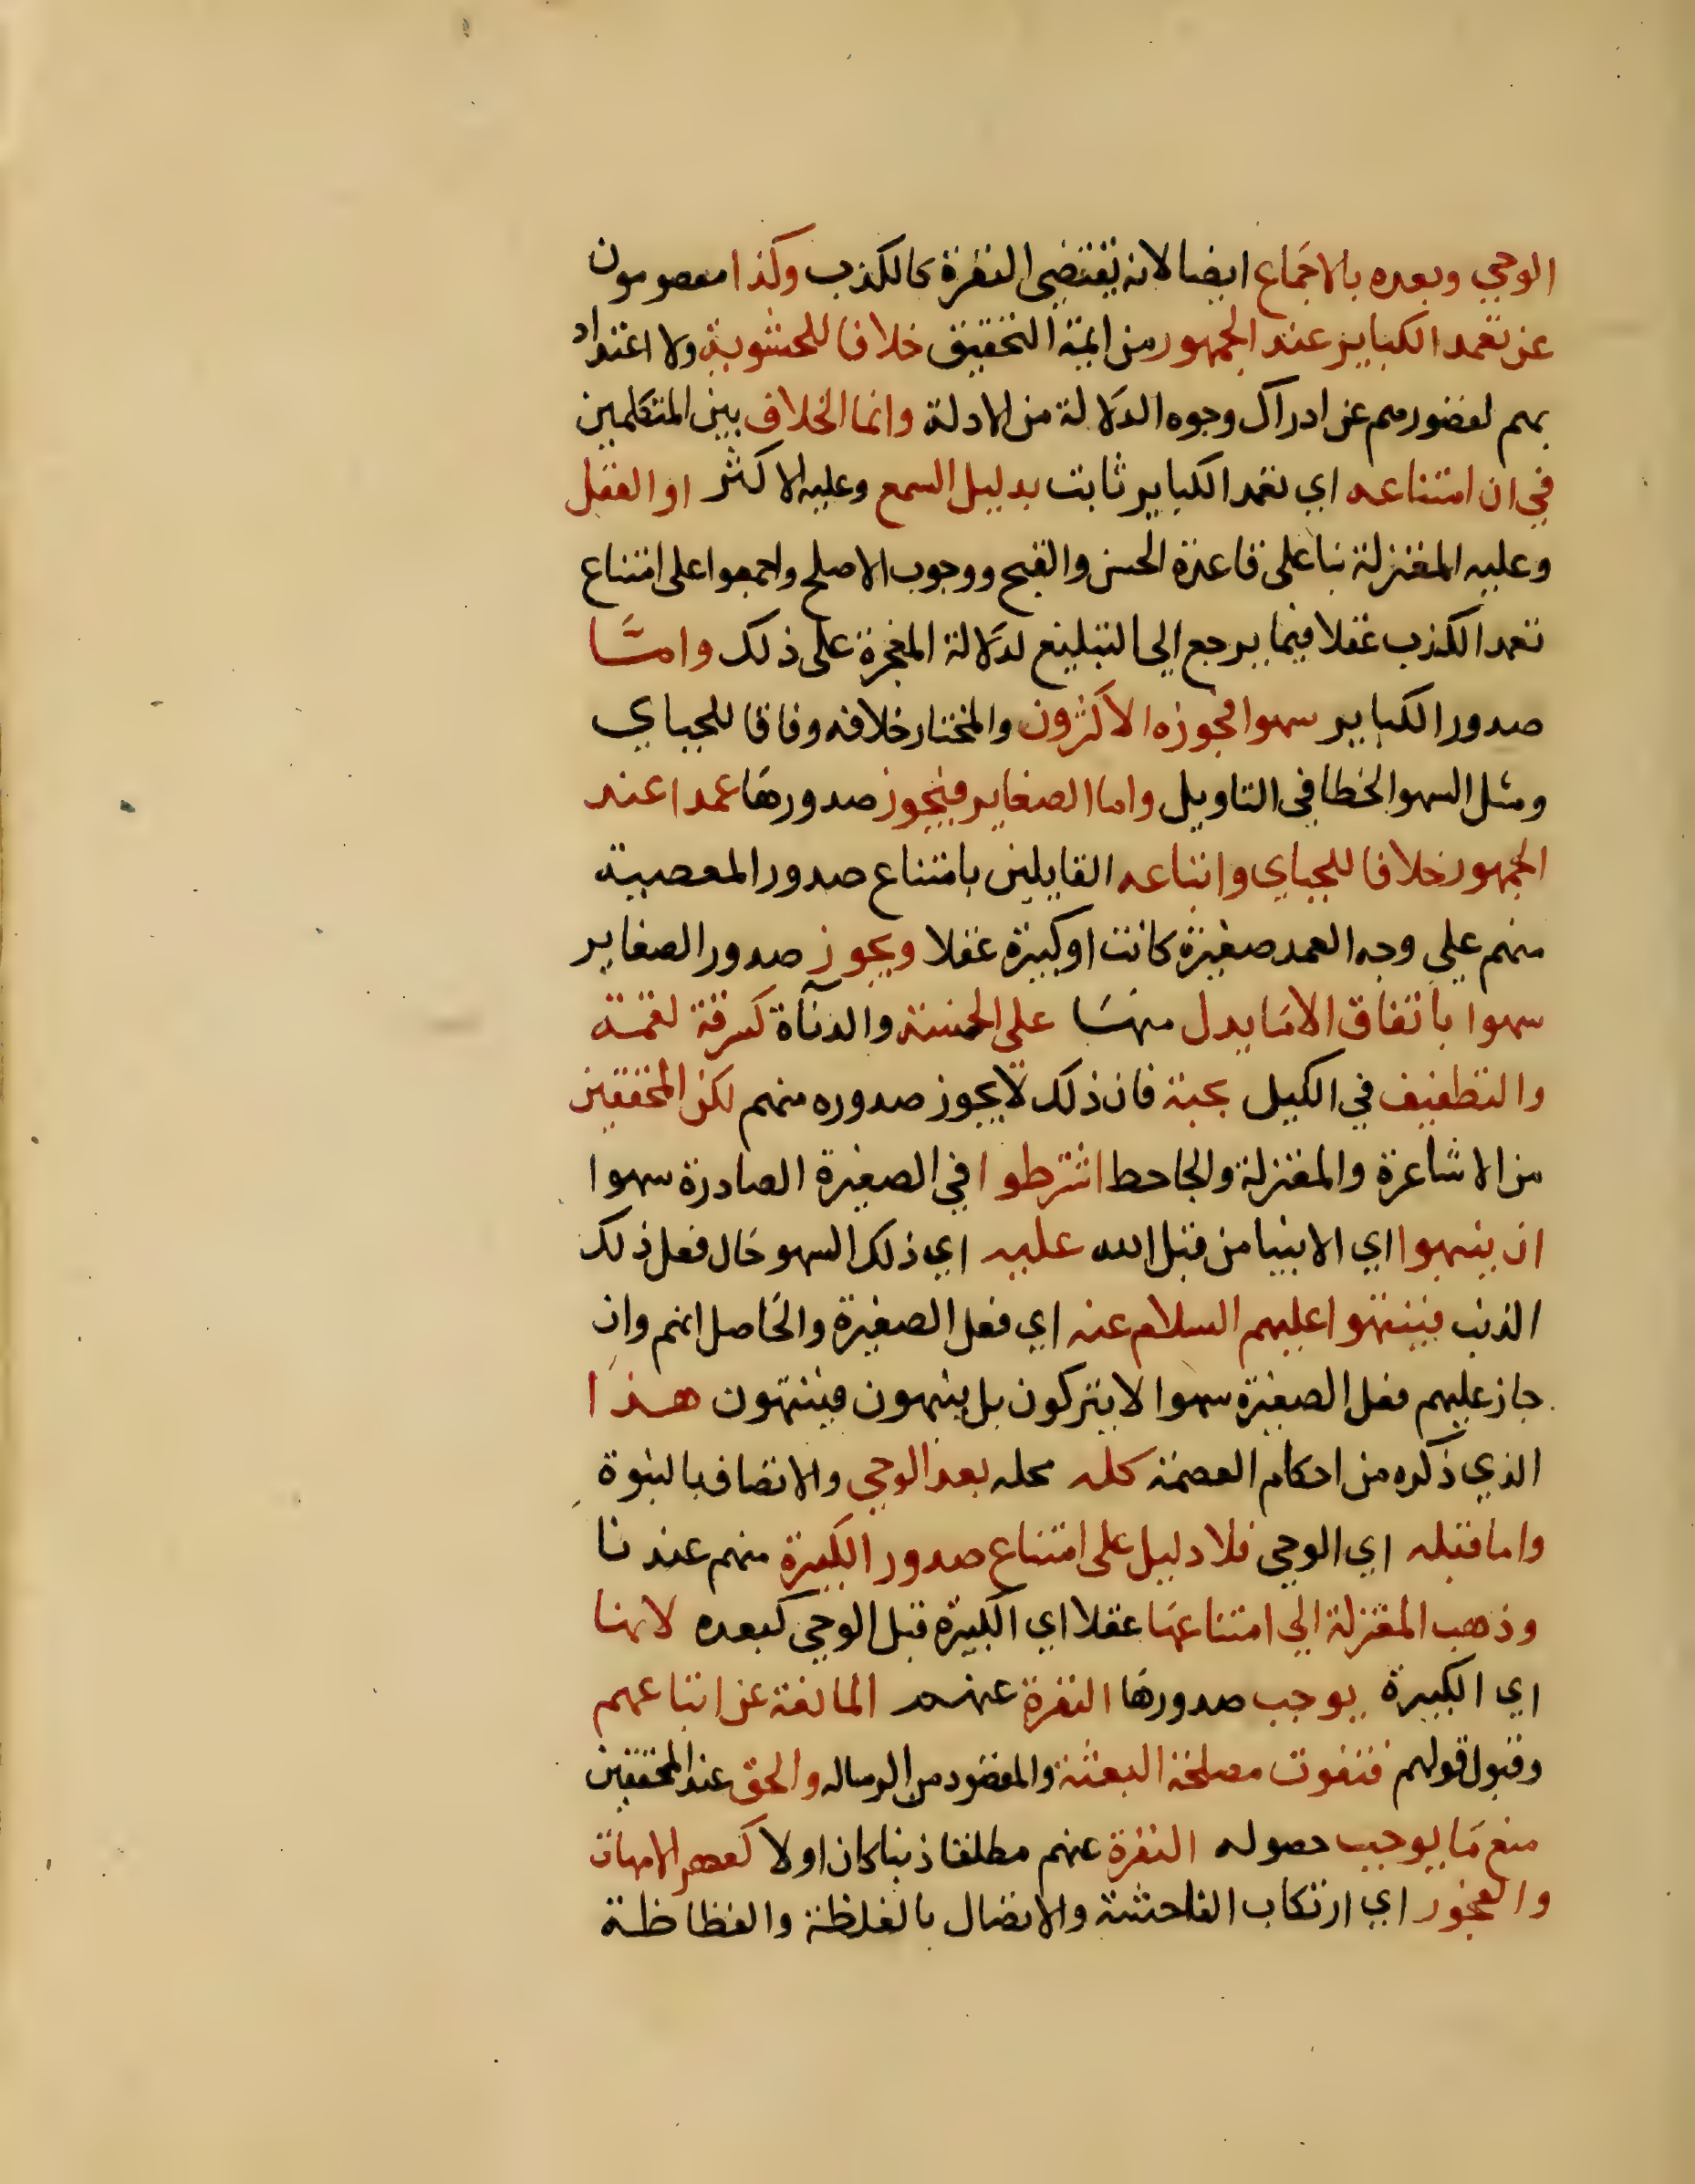 الوحي وبعده بالاجماع ايضا لانه يقتضي النفرة كالكذب وكذا معصومون
عن تعمد الكباير عند الجمهور من ايمة التحقيق خلافا للحشوية ولا اعتداد
بهم لقصورهم عن ادراك وجوه الدلالة من الادلة وانما الخلاف بين المتكلمين
في ان امتناعه اي تعمد الكباير ثابت بدليل السمع وعليه الاكثر او العقل
وعليه المعتزلة بنا على قاعدة الحسن والقبح ووجوب الاصلح واجمعوا على امتناع
تعمد الكذب عقلا فيما يرجع الي التبليغ لدلالة المعجزة على ذلك واما
صدور الكباير سهوا فجوزه الاكثرون والمختار خلافه وفاقا للجباي
ومثل السهو الخطا في التاويل واما الصغاير فيجوز صدورها عمدا عند
الجمهور خلافا للجباي واتباعه القايلين بامتناع صدور المعصية
منهم علي وجه العمد صغيرة كانت او كبيرة عقلا ويجوز صدور الصغاير
سهوا باتفاق الا ما يدل منها على الخسة والدناة كسرقة لقمة
والتطفيف في الكيل بحبة فان ذلك لا يجوز صدوره منهم لكن المحققين
من الاشاعرة والمعتزلة والجاحظ اشترطوا في الصغيرة الصادرة سهوا
ان ينبهوا اي الانبيا من قبل الله عليه اي ذلك السهو حال فعل ذلك
الذنب فينتهوا عليهم السلام عنه اي فعل الصغيرة والحاصل انهم وان
جاز عليهم فعل الصغيرة سهوا لا يتركون بل ينبهون فينتهون هذا
الذي ذكره من احكام العصمة كله محله بعد الوحي والاتصاف بالنبوة
واما قبله اي الوحي فلا دليل على امتناع صدور الكبيرة منهم عندنا
وذهب المعتزلة الى امتناعها عقلا اي الكبيرة قبل الوحي كبعده لانها
اي الكبيرة يوجب صدورها النفرة عنهم المانعة عن اتباعهم
وقبول قولهم فتفوت مصلحة البعثة والمقصود من الرساله والحق عند المحققين
منع ما يوجب حصوله النفرة عنهم مطلقا ذنبا كان اولا كعهر الامهات
والفجور اي ارتكاب الفاحشة والاتصال بالغلظة والفظاظة